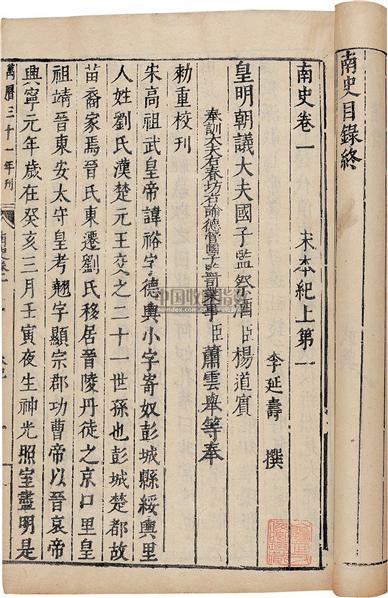 南史目錄終
南史卷一
宋本紀上第一
李延壽 撰
皇明朝議大夫國子監祭酒臣楊道賓
奉訓大夫右春坊右諭德管國子監司業事臣蕭雲舉等奉
勑重校刊
朱高祖武皇帝諱裕字德輿小字寄奴彭城縣綏輿里
人姓劉氏漢楚元王交之二十一世孫也彭城楚都故
苗裔家焉晉氏東遷劉氏移居晉陵丹徒之京口里皇
祖靖晉東安太守皇考翹字顯宗郡功曹帝以晉哀帝
興寧元年歲在癸亥三月壬寅夜生神光照室盡明是
萬曆三十一年刊
南史卷一